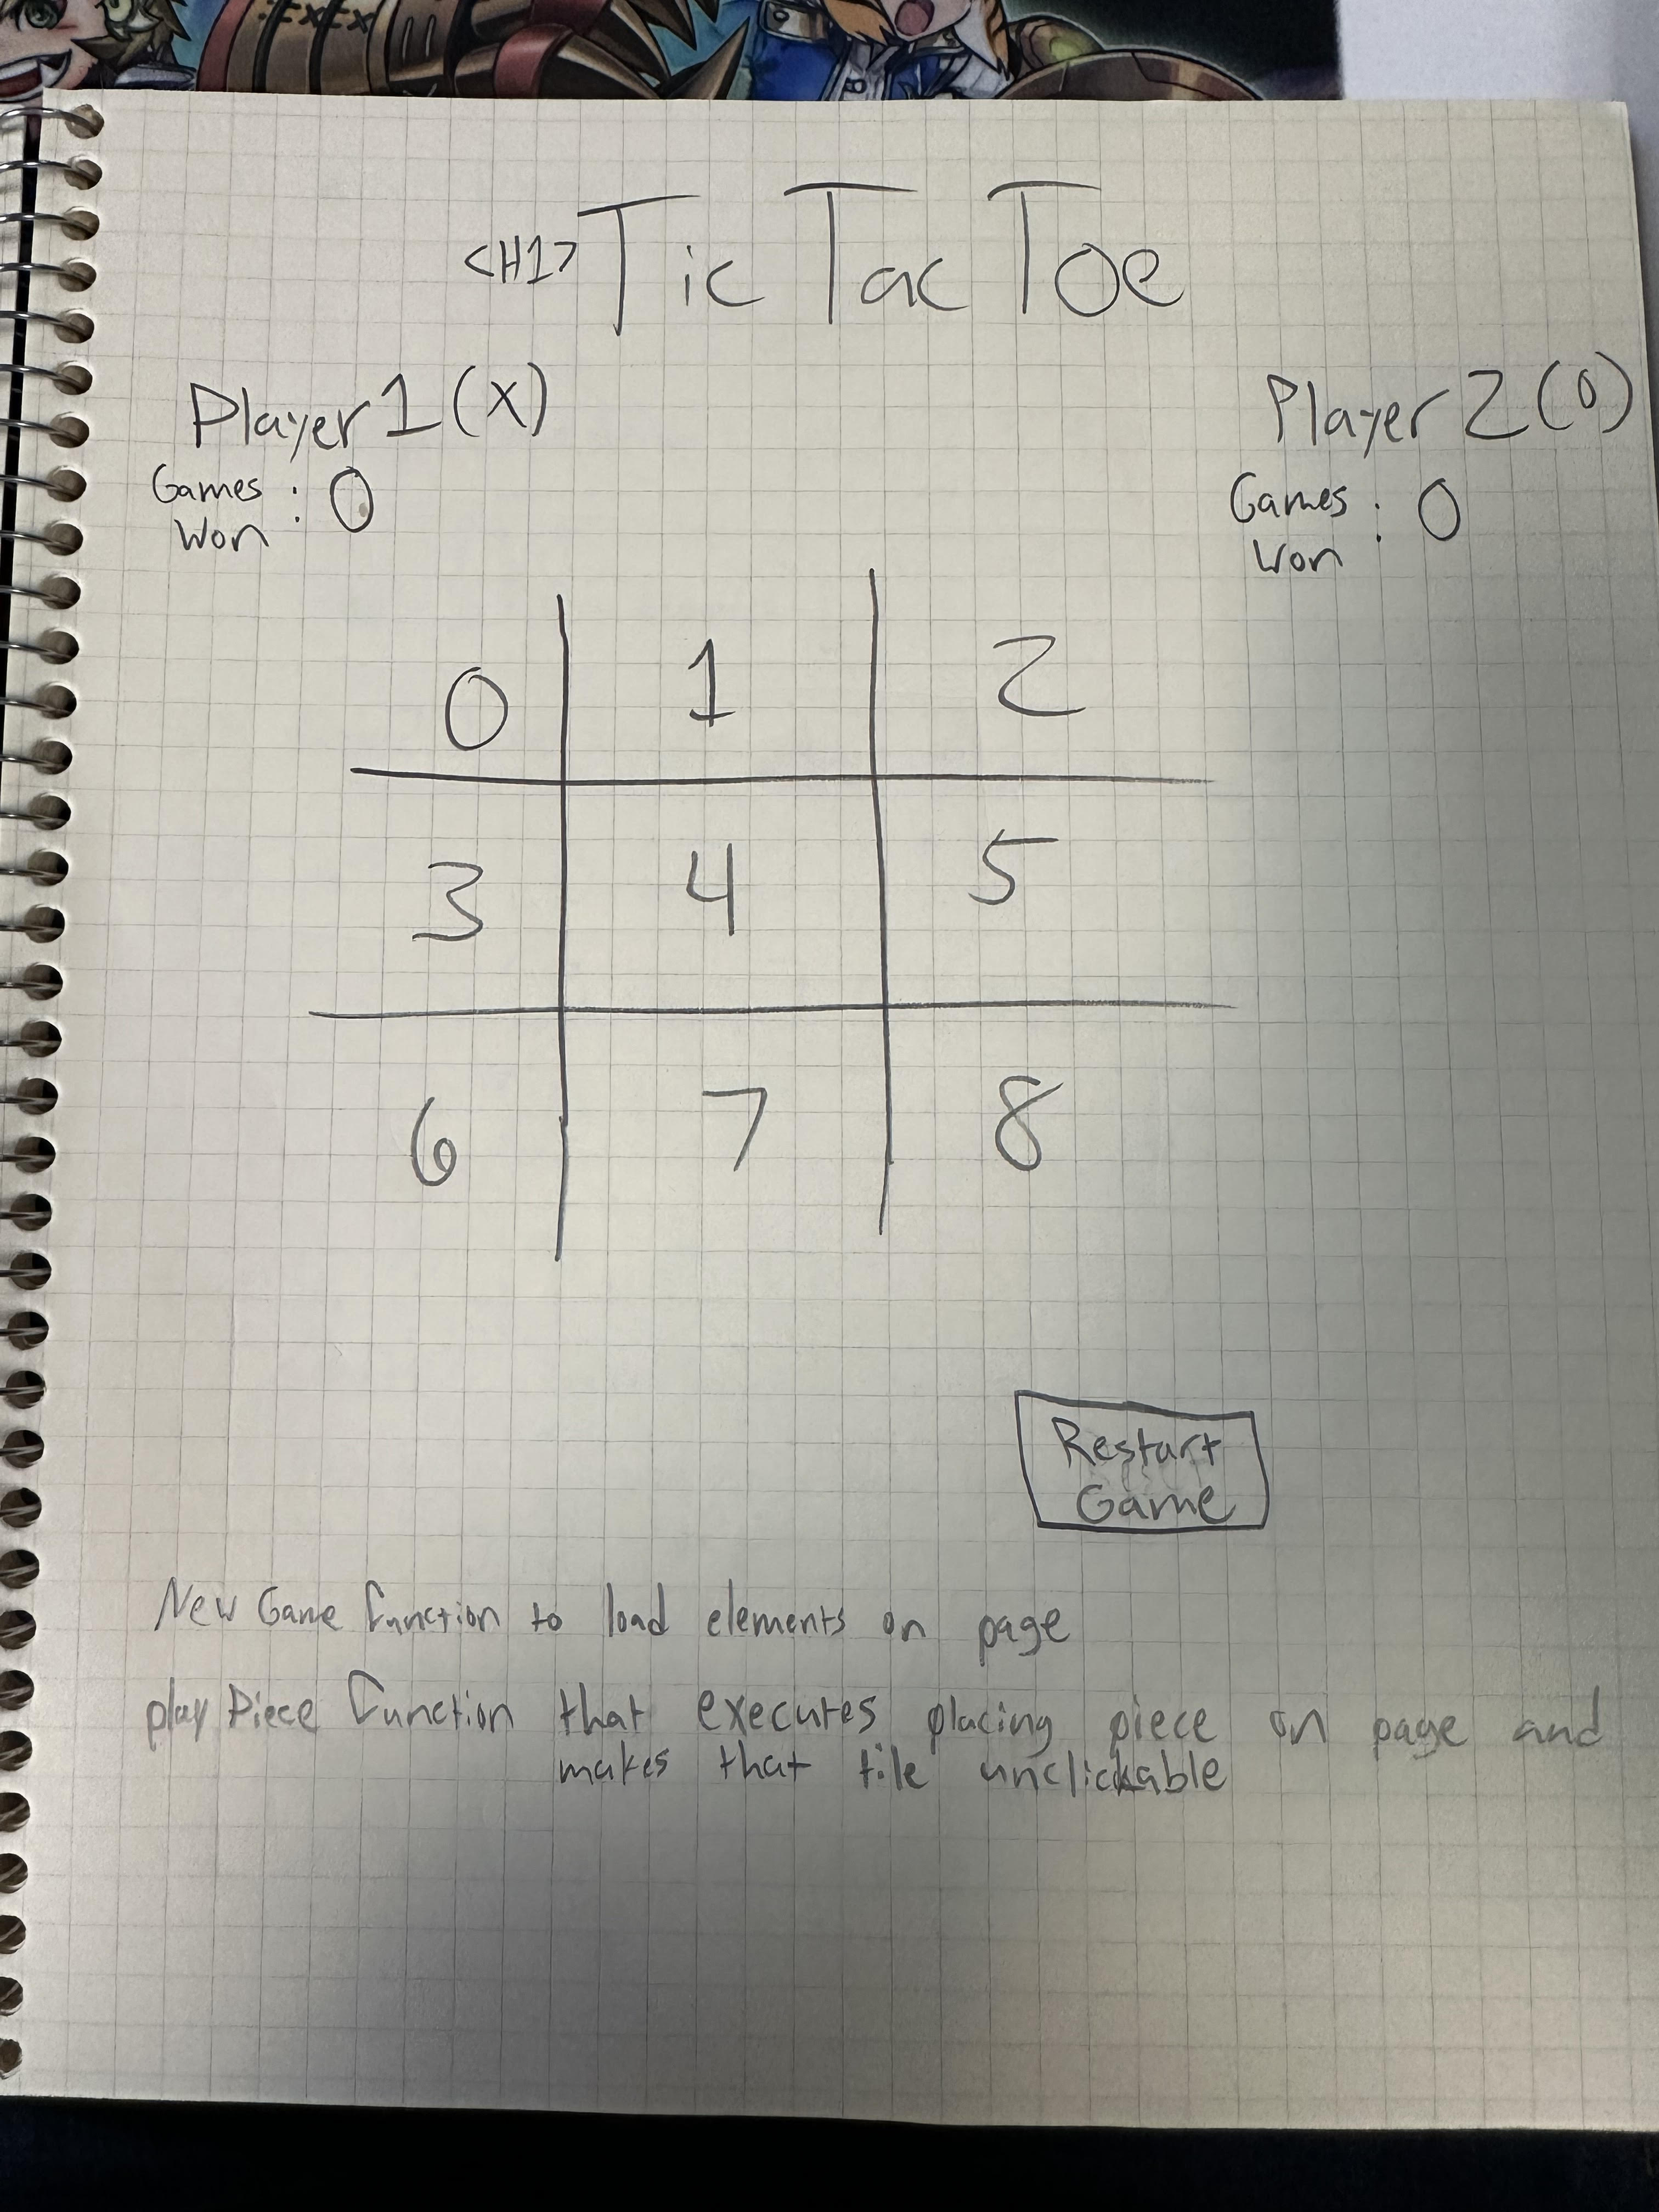 <H1> Tic Tac Toe
Player 1 (X)
Player 2 (O)
Games Won : 0
Games Won : 0
0 1 2
3 4 5
6 7 8
Restart
Game
New Game function to load elements on page
play Piece function that executes placing piece on page and
makes that tile unclickable